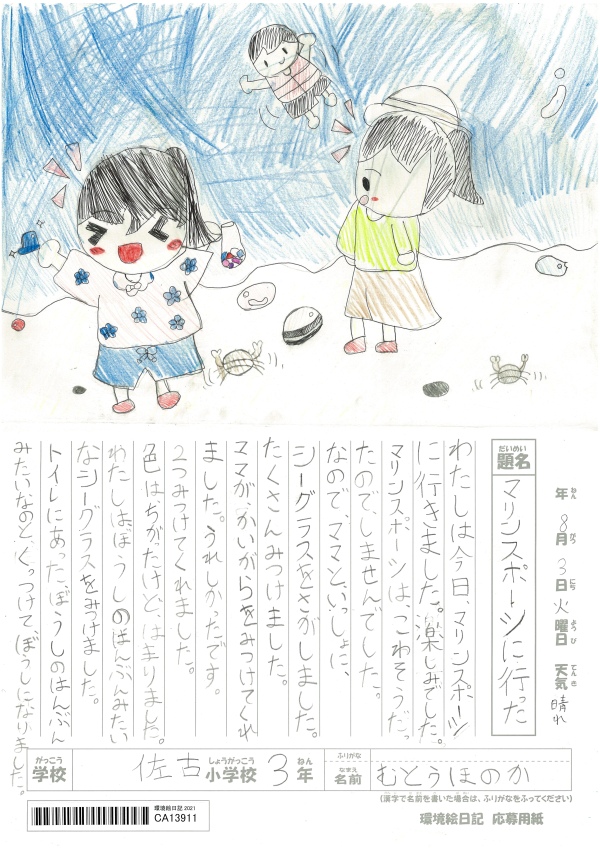 年 8月 3日 火曜日 天気 晴れ
ねん がつ にち ようび てんき
だいめい
題名 マリンスポーツに行った
わたしは今日、マリンスポーツ
に行きました。楽しみでした。
マリンスポーツは、こわそうだっ
たので、しませんでした。
なので、ママといっしょに、
シーグラスをさがしました。
たくさんみつけました。
ママが、かいがらをみつけてくれ
ました。うれしかったです。
2つみつけてくれました。
色はちがたけど、はまりました。
わたしは、ぼうしのはんぶんみたい
なシーグラスをみつけました。
トイレにあった、ぼうしのはんぶん
みたいなのと、くっつけてぼうしになりました。
がっこう しょうがっこう ねん ふりがな なまえ
学校 佐古 小学校 3年 名前 むとうほのか
(漢字で名前を書いた場合は、ふりがなをふってください)
環境絵日記 2021
CA13911
環境絵日記 応募用紙